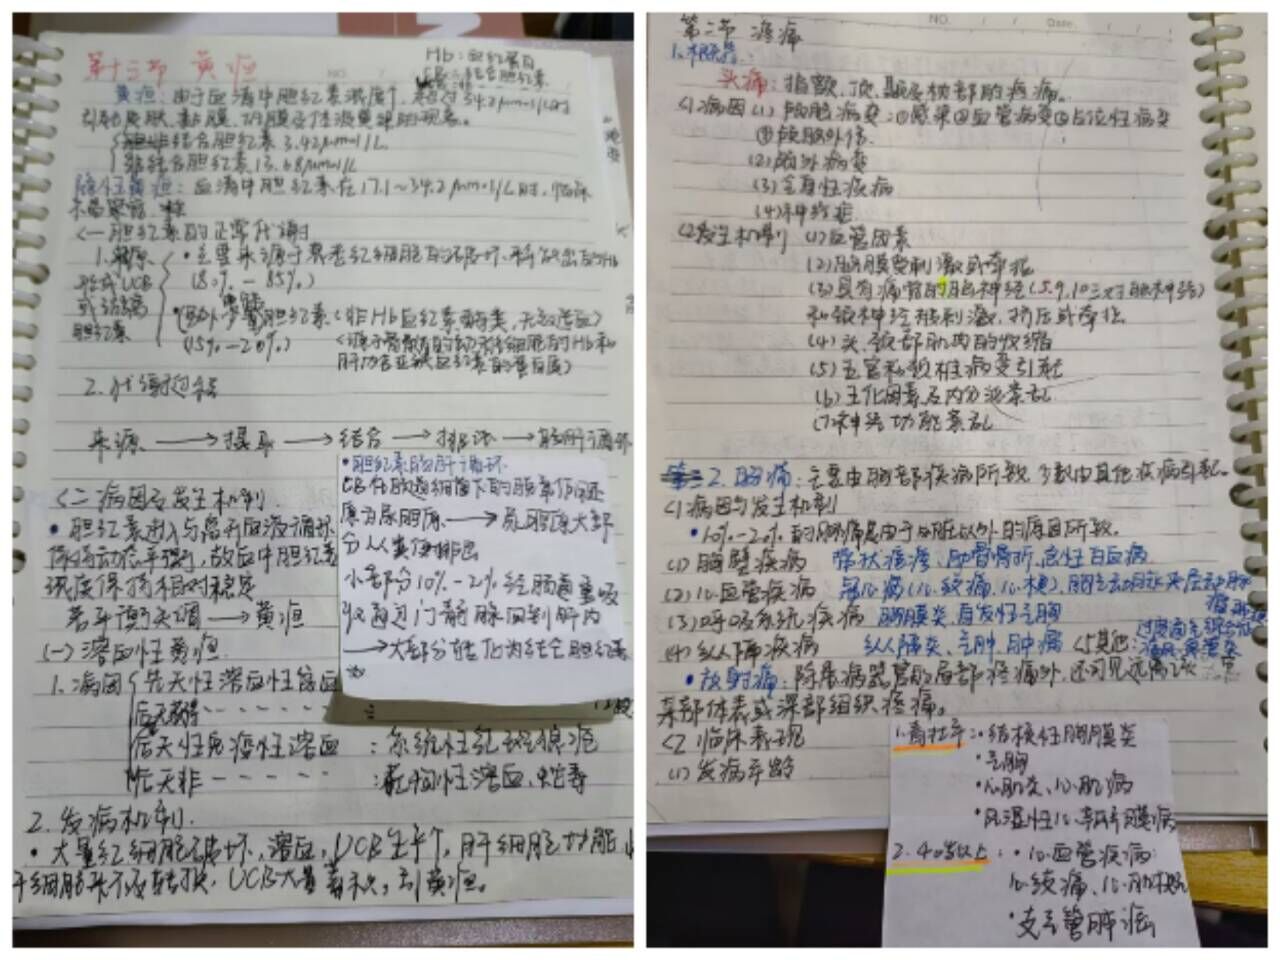 第十三节 黄疸
Hb：血红蛋白
结合胆红素
黄疸：由于血清中胆红素浓度↑，超过34.2μmol/L时
引起皮肤、黏膜、巩膜及体液黄染的现象。
结合胆红素3.42μmol/L
非结合胆红素13.68μmol/L
隐性黄疸：血清中胆红素在17.1~34.2μmol/L时，临床
不易察觉
<一胆红素的正常代谢
1.来源
形成UCB
或游离
胆红素
·主要来源于衰老红细胞的破坏、释放出的Hb
(80%-85%)
胆红素(非Hb血红素
(15%-20%)
2.代谢过程
来源→摄取→结合→排泄→肠肝循环
·胆红素肠肝循环
CB在肠道细菌下的脱氢作用还
原为尿胆原→尿胆原大部
分从粪便排出
小部分10%-2%经肠道重吸
收通过门静脉回到肝内
→大部分转化为结合胆红素
<二病因与发生机制
·胆红素进入与离开血液循环
保持动态平衡，故血中胆红素
浓度保持相对稳定
若平衡失调→黄疸
(一)溶血性黄疸
1.病因 先天性溶血性贫血
后天获得
后天性免疫性溶血：系统性红斑狼疮
后天非-----：药物性溶血、蛇毒
2.发病机制
·大量红细胞破坏，溶血，UCB生成↑，肝细胞功能↓
肝细胞来不及转换，UCB大量蓄积，引黄疸。
第二节 疼痛
1.
头痛：指额、顶、颞及枕部的疼痛。
<1病因(1)颅脑病变：①感染②血管病变③占位性病变
④颅脑外伤
(2)颅外病变
(3)全身性疾病
(4)神经症
<2发生机制 (1)血管因素
(2)脑膜受刺激或牵拉
(3)具有痛觉的脑神经(5.9.10三对脑神经)
和颈神经被刺激、挤压或牵拉
(4)头、颈部肌肉的收缩
(5)五官和颈椎病变引起
(6)生化因素及内分泌紊乱
(7)神经功能紊乱
2.胸痛：主要由胸部疾病所致，少数由其他疾病引起。
<1病因与发生机制
·10%-20%的胸痛是由于心脏以外的原因所致。
(1)胸壁疾病 带状疱疹、肋骨骨折、急性白血病
(2)心血管疾病 冠心病(心绞痛、心梗)、胸主动脉夹层动脉
瘤
(3)呼吸系统疾病 胸膜炎、自发性气胸
(4)纵膈疾病 纵膈炎、气肿、肿瘤 <5其他：过度通气综合征
痛风、
·放射痛：除患病器官的局部疼痛外，还可见远离该器官
某部体表或深部组织疼痛。
<2临床表现
(1)发病年龄
1.青壮年：·结核性胸膜炎
·气胸
·心肌炎、心肌病
·风湿性心瓣膜病
2.40岁以上：·心血管疾病
心绞痛、心肌梗死
·支气管肺癌